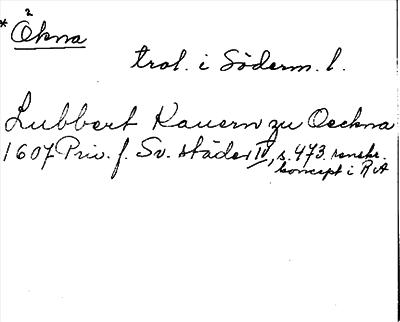 * 2 Ökna
trol. i Söderm. l.
Lubbert Kauern zu Oeckna
1607 Priv. f. Sv. städer IV, s. 473. renskr.
koncept i RA